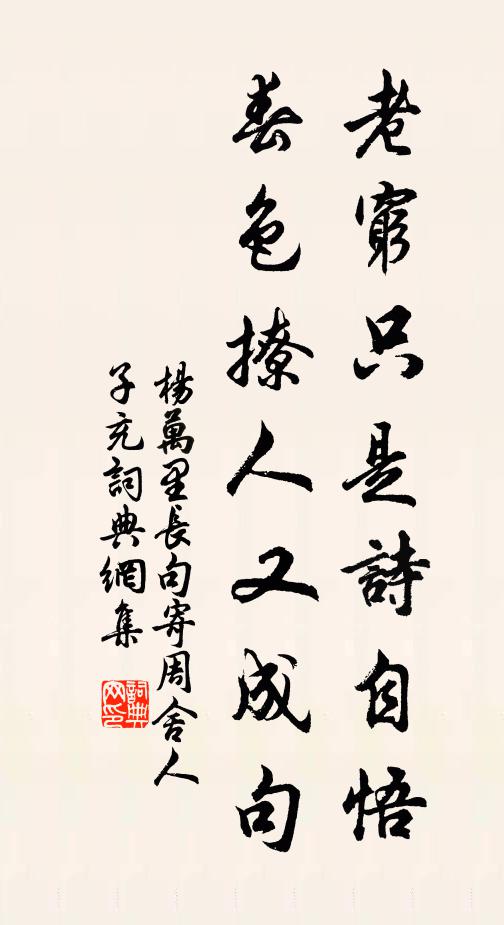 老窮只是詩自悟
春色撩人又成句
楊萬里長句寄周舍人
子充詞典網集
詞典
网印